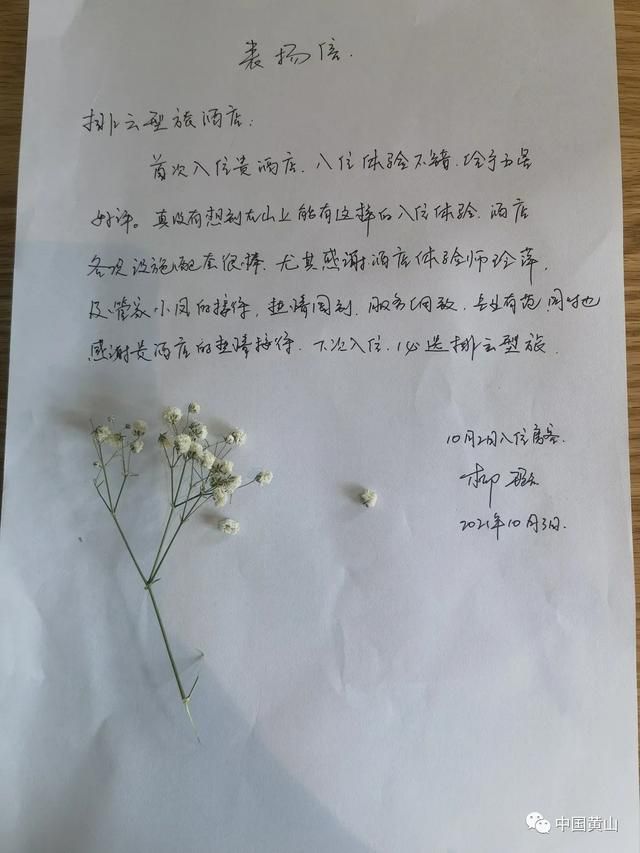 表扬信.
排云型旅酒店:
首次入住贵酒店.入住体验不错.给予五星
好评。真没有想到在山上能有这样的入住体验.酒店
各项设施配套很棒.尤其感谢酒店体验师玲萍,
及管家小凤的接待,热情周到.服务细致. 同时也
感谢贵酒店的热情接待.下次入住.必选排云型旅.
10月2日入住离客.
柳
2021年10月3日.
中国黄山